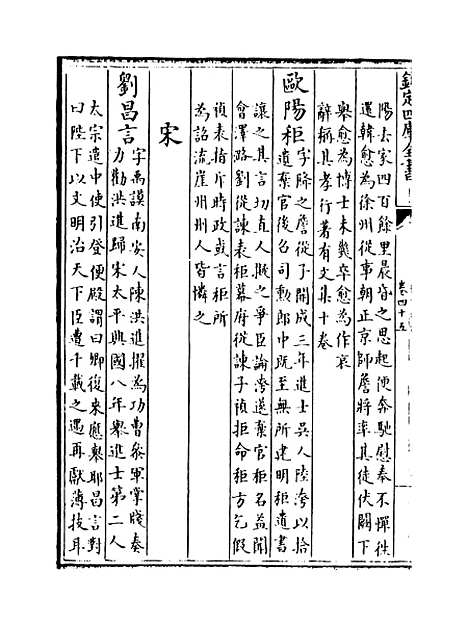 欽定四庫全書
卷四十五
陽去家四百餘里晨昏之思起便奔馳慰奉不憚徃
還韓愈為徐州從事朝正京師詹將率其徒伏闕下
舉愈為博士未幾卒愈為作哀
辭稱其孝行著有文集十卷
歐陽秬字降之詹從子開成三年進士吳人陸洿以拾
遺棄官後召司勲郎中既至無所建明秬遺書
讓之其言切直人賤之爭臣論洿遂棄官秬名益聞
會澤潞劉從諫表秬幕府從諫子禎拒命秬方乞假
禎表指斥時政或言秬所
為詔流崖州州人皆憐之
宋
劉昌言字禹謨南安人陳洪進擢為功曹叅軍掌牋奏
力勸洪進歸宋太平興國八年舉進士第二人
太宗遣中使引登便殿謂曰卿復來應舉耶昌言對
曰陛下以文明治天下臣遭千載之遇再厭薄技耳